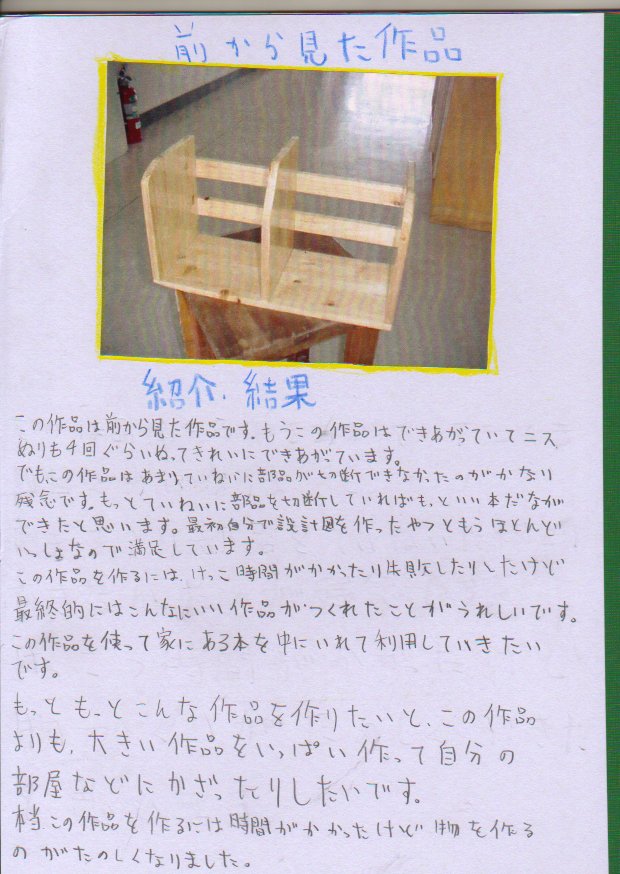 前から見た作品
紹介.結果
この作品は前から見た作品です。もうこの作品はできあがっていてニス
ぬりも4回ぐらいぬってきれいにできあがています。
でもこの作品はあまりていねいに部品が切断できなかったのがかなり
残念です。もっとていねいに部品を切断していればもっといい本だながが
できたと思います。最初自分で設計図を作ったやつともうほとんど
いっしょなので満足しています。
この作品を作るには、けっこ時間がかかったり失敗したりしたけど
最終的にはこんなにいい作品がつくれたことがうれしいです。
この作品を使って家にある本を中にいれて利用していきたい
です。
もっともっとこんな作品を作りたいと、この作品
よりも、大きい作品をいっぱい作って自分の
部屋などにかざったりしたいです。
本当この作品を作るには時間がかかったけど物を作る
のがたのしくなりました。